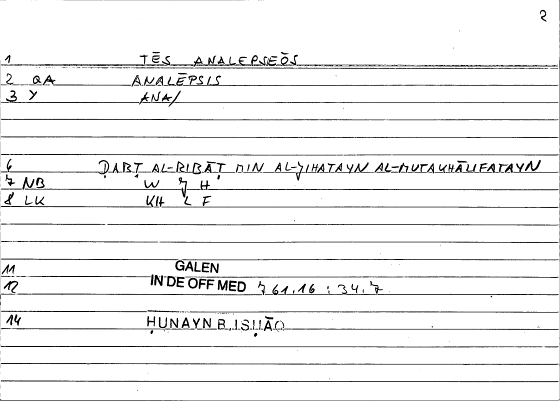 2
1 TĒS ANALEPSEŌS
2 QA ANALĒPSIS
3 Y ANA/
6 ḌABṬ AL-RIBĀṬ MIN AL-JIHATAYN AL-MUTAKHĀLIFATAYN
7 NB W J H
8 LK KH L F
11 GALEN
12 IN DE OFF MED 761.16 : 34.7
14 ḤUNAYN B. ISḤĀQ